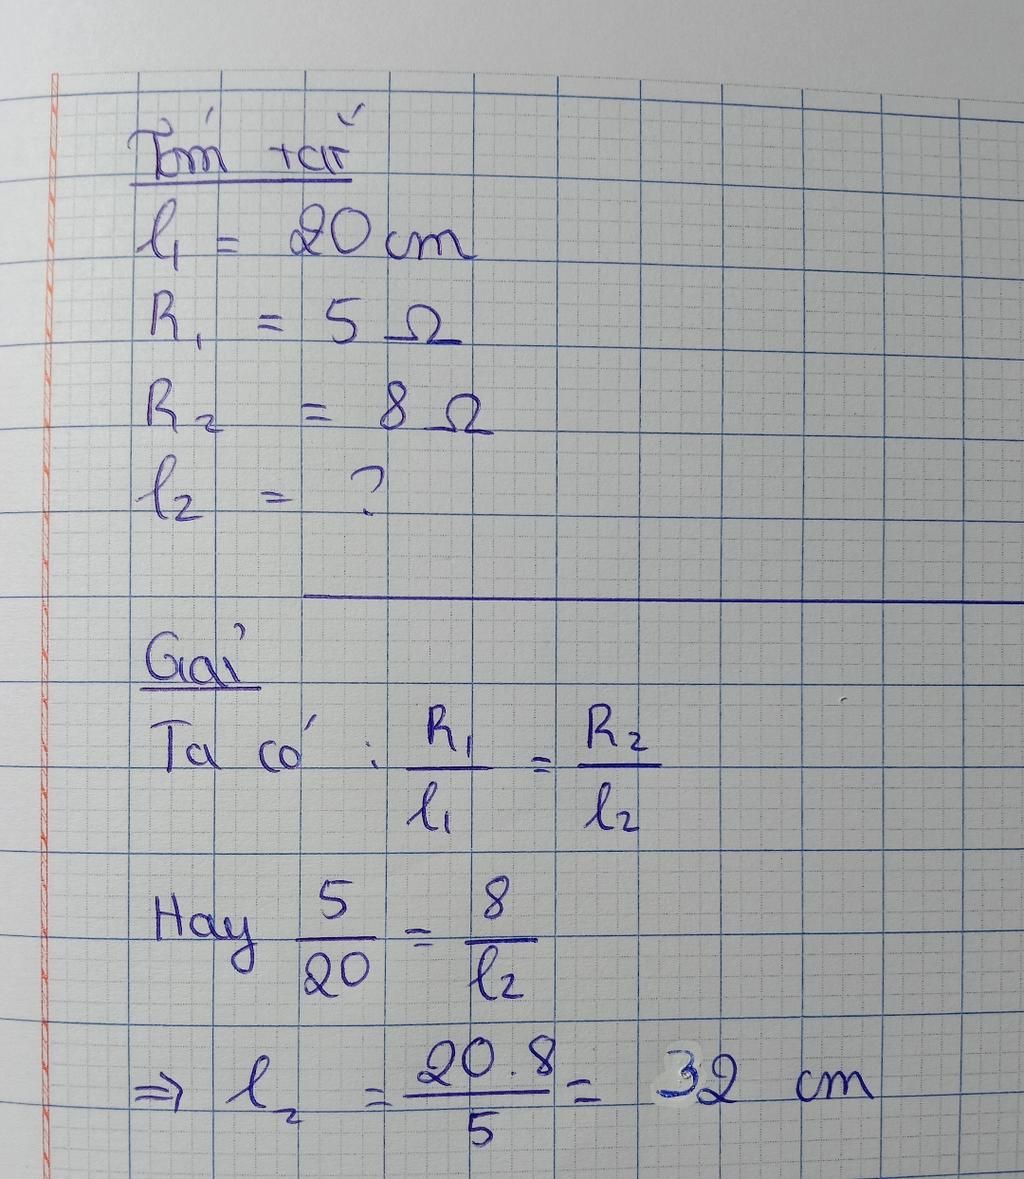 Tóm tắt
l₁ = 20 cm
R₁ = 5 Ω
R₂ = 8 Ω
l₂ = ?
Giải
Ta có : R₁/l₁ = R₂/l₂
Hay 5/20 = 8/l₂
⇒ l₂ = 20.8/5 = 32 cm